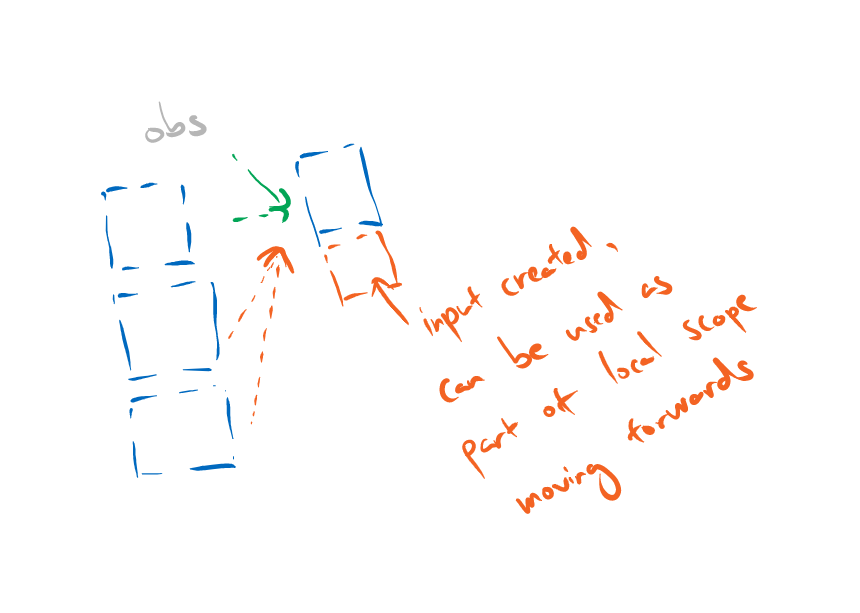 obs
input created.
can be used as
part of local scope
moving forwards